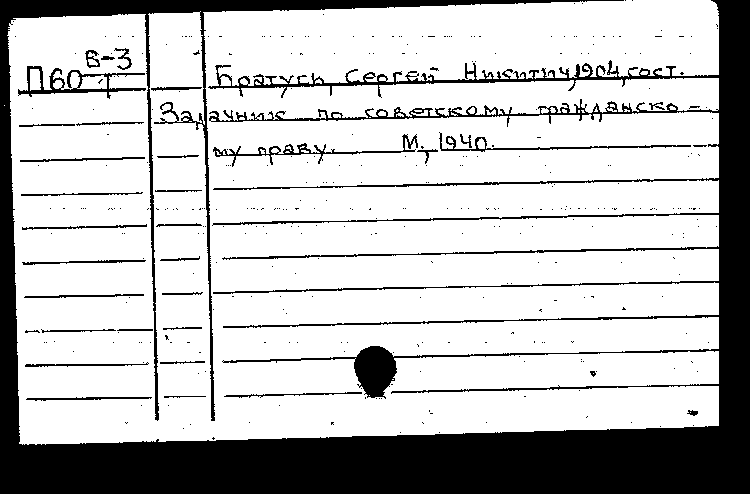 В-3
П60 Братусь, Сергей Никитич, 1904, сост.
Задачник по советскому гражданско-
му праву. М., 1940.